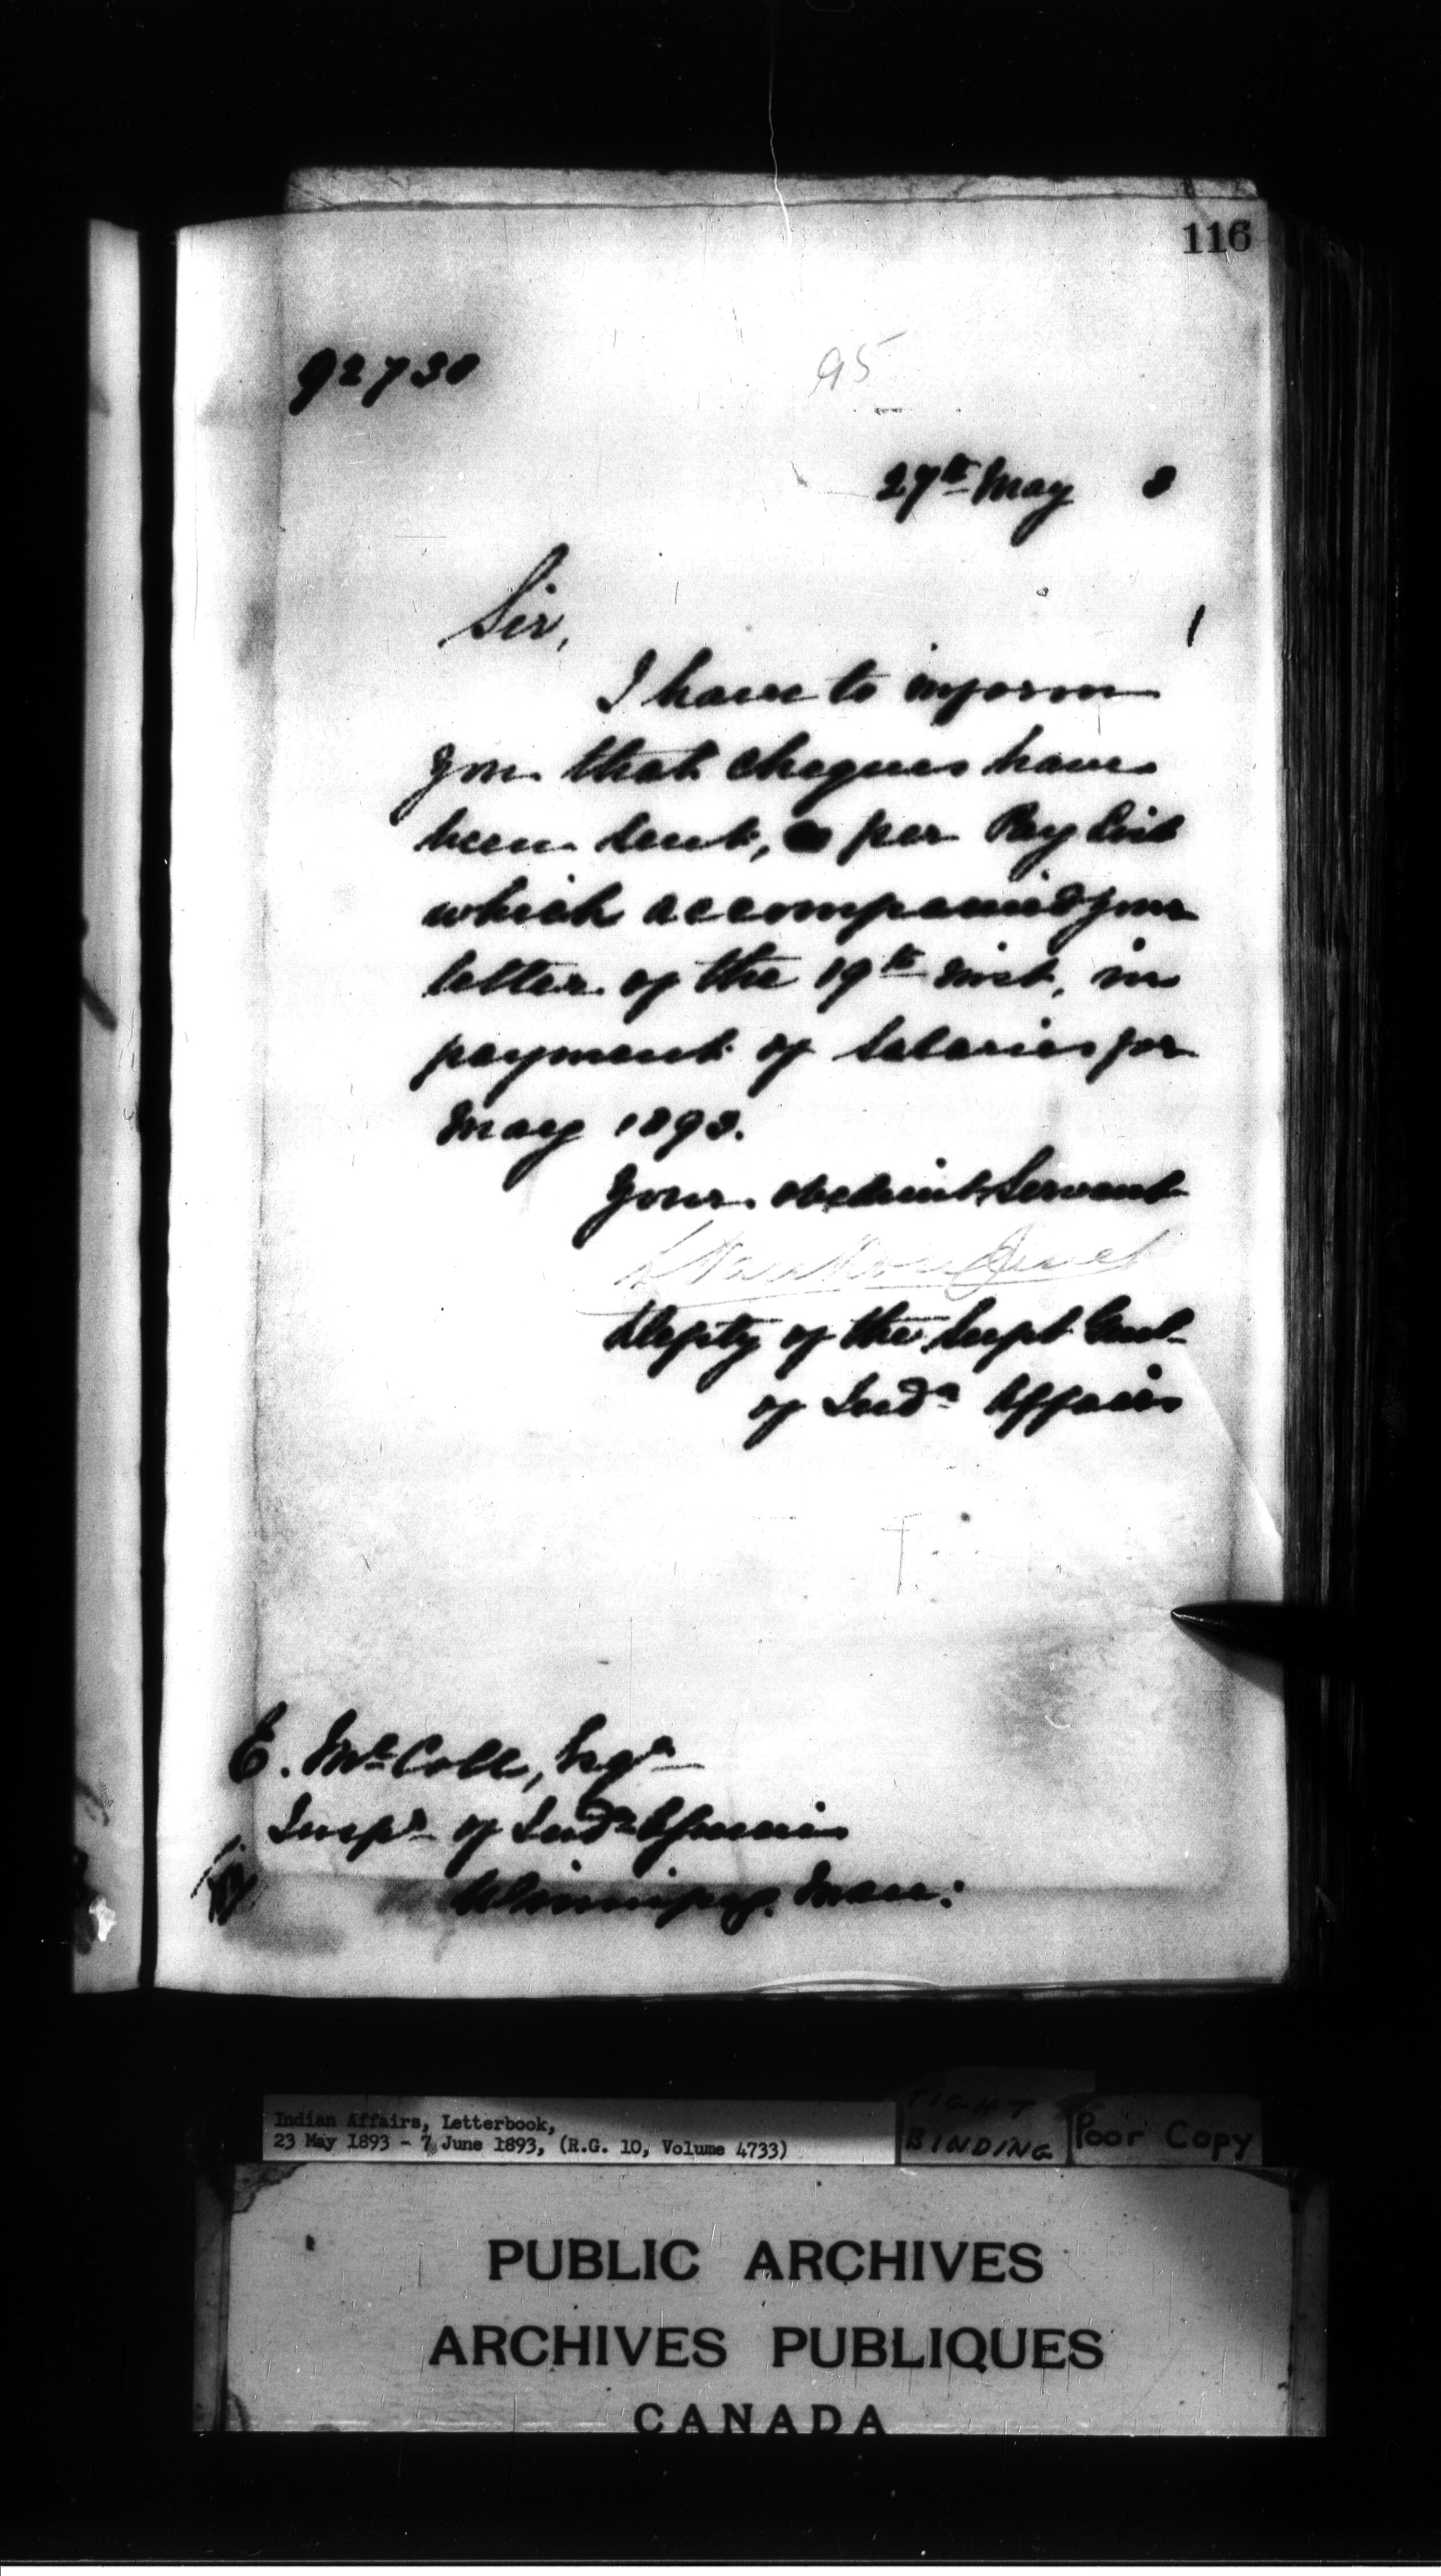 116
92730
95
27th May 3
Sir,
I have to inform
you that cheques have
been sent, per Pay List
which accompanied your
letter of the 19th inst, in
payment of Salaries for
May 1893.
Your obedient Servant
L Vankoughnet
Depty of the Supt Genl
of Indn Affairs
E. McColl, Esqr
Inspr of Indn Affairs
Winnipeg. Man:
Indian Affairs, Letterbook,
23 May 1893 - 7 June 1893, (R.G. 10, Volume 4733)
TIGHT
BINDING
Poor Copy
PUBLIC ARCHIVES
ARCHIVES PUBLIQUES
CANADA